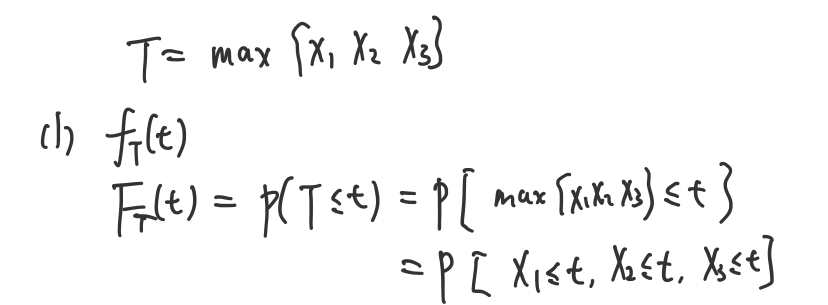 T = max {X₁ X₂ X₃}
(1) f_T(t)
F_T(t) = P(T≤t) = P[ max{X₁X₂ X₃}≤t }
= P[ X₁≤t, X₂≤t, X₃≤t]